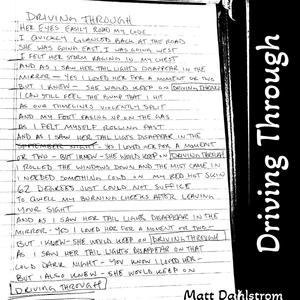 DRIVING THROUGH
HER EYES EASILY READ MY CODE
I QUICKLY GLANCED BACK AT THE ROAD
SHE WAS GOING EAST, I WAS GOING WEST
I FELT HER STORM RAGING IN MY CHEST
AND AS I SAW HER TAIL LIGHTS DISAPPEAR IN THE
MIRROR - YES I LOVED HER FOR A MOMENT OR TWO
BUT I KNEW - SHE WOULD KEEP ON DRIVING THROUGH
I CAN STILL FEEL THE BUMP THAT I HIT
AS OUR TIMELINES VIOLENTLY SPLIT
AND MY FOOT EASING UP ON THE GAS
AS I FELT MYSELF ROLLING PAST
AND AS I SAW HER TAIL LIGHTS DISAPPEAR IN THE
SEPTEMBER NIGHT - YES I LOVED HER FOR A MOMENT
OR TWO - BUT I KNEW - SHE WOULD KEEP ON DRIVING THROUGH
I ROLLED THE WINDOWS DOWN AND THE MIST CAME IN
I NEEDED SOMETHING COLD ON MY RED HOT SKIN
62 DEGREES JUST COULD NOT SUFFICE
TO QUELL MY BURNING CHEEKS AFTER LEAVING
YOUR SIGHT
AND AS I SAW HER TAIL LIGHTS DISAPPEAR IN THE
MIRROR - YES I LOVED HER FOR A MOMENT OR TWO -
BUT I KNEW - SHE WOULD KEEP ON DRIVING THROUGH
AS I SAW HER TAIL LIGHTS DISAPPEAR ON THAT
COLD DARK NIGHT - YOU KNOW I LOVED HER -
BUT I ALSO KNEW - SHE WOULD KEEP ON
DRIVING THROUGH
Driving Through
Matt Dahlstrom